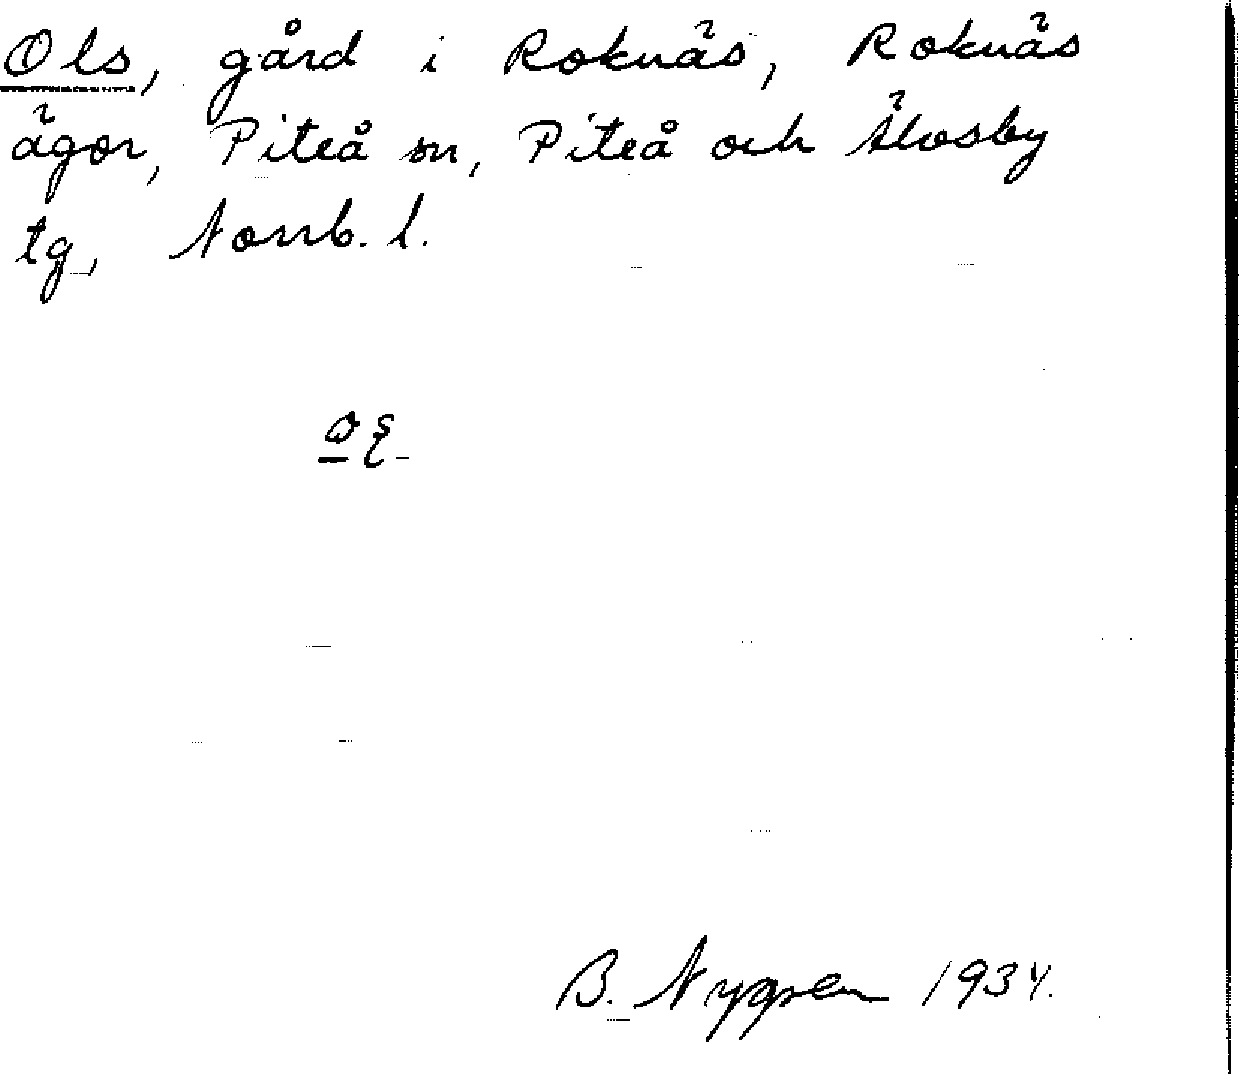 Ols, gård i Roknäs, Roknäs
ägor, Piteå sn, Piteå och Älvsby
tg, Norrb. l.
B. Nygren 1934.